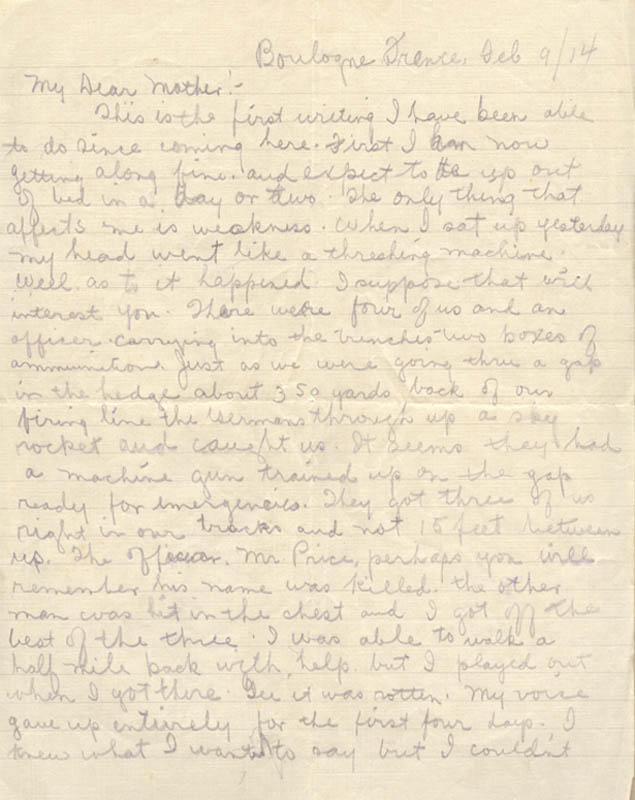 Boulogne France, Feb 9/14
My Dear Mother:-
This is the first writing I have been able
to do since coming here. First I am now
getting along fine. and expect to be up out
of bed in a day or two. The only thing that
affects me is weakness. When I sat up yesterday
my head went like a threshing machine.
Well as to it happened. I suppose that will
interest you. There were four of us and an
officer. carrying into the trenches two boxes of
ammunition. Just as we were going thru a gap
in the hedge about 350 yards back of our
firing line the Germans through up a sky
rocket and caught us. It seems they had
a machine gun trained up on the gap
ready for emergencies. They got three of us
right in our tracks and not 15 feet between
us. The officer. Mr Price, perhaps you will
remember his name was killed. the other
man was hit in the chest and I got off the
best of the three. I was able to walk a
half mile back with help. but I played out
when I got there. Gee it was rotten. My voice
gave up entirely for the first four days. I
knew what I wanted to say but I couldn't